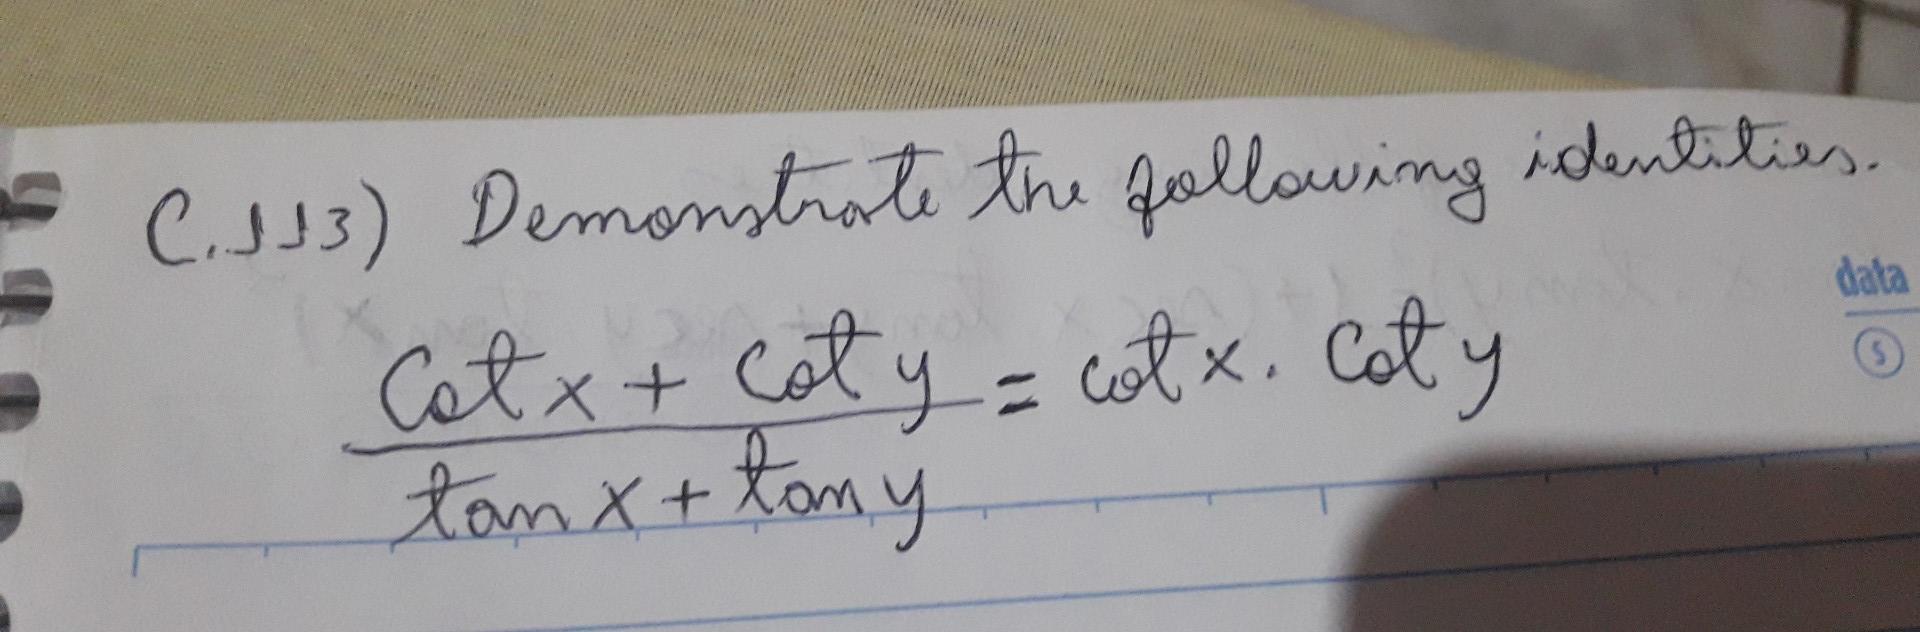 C.113) Demonstrate the following identities.
data
Cot x + Cot y = cot x . Cot y
tan x + tan y
S